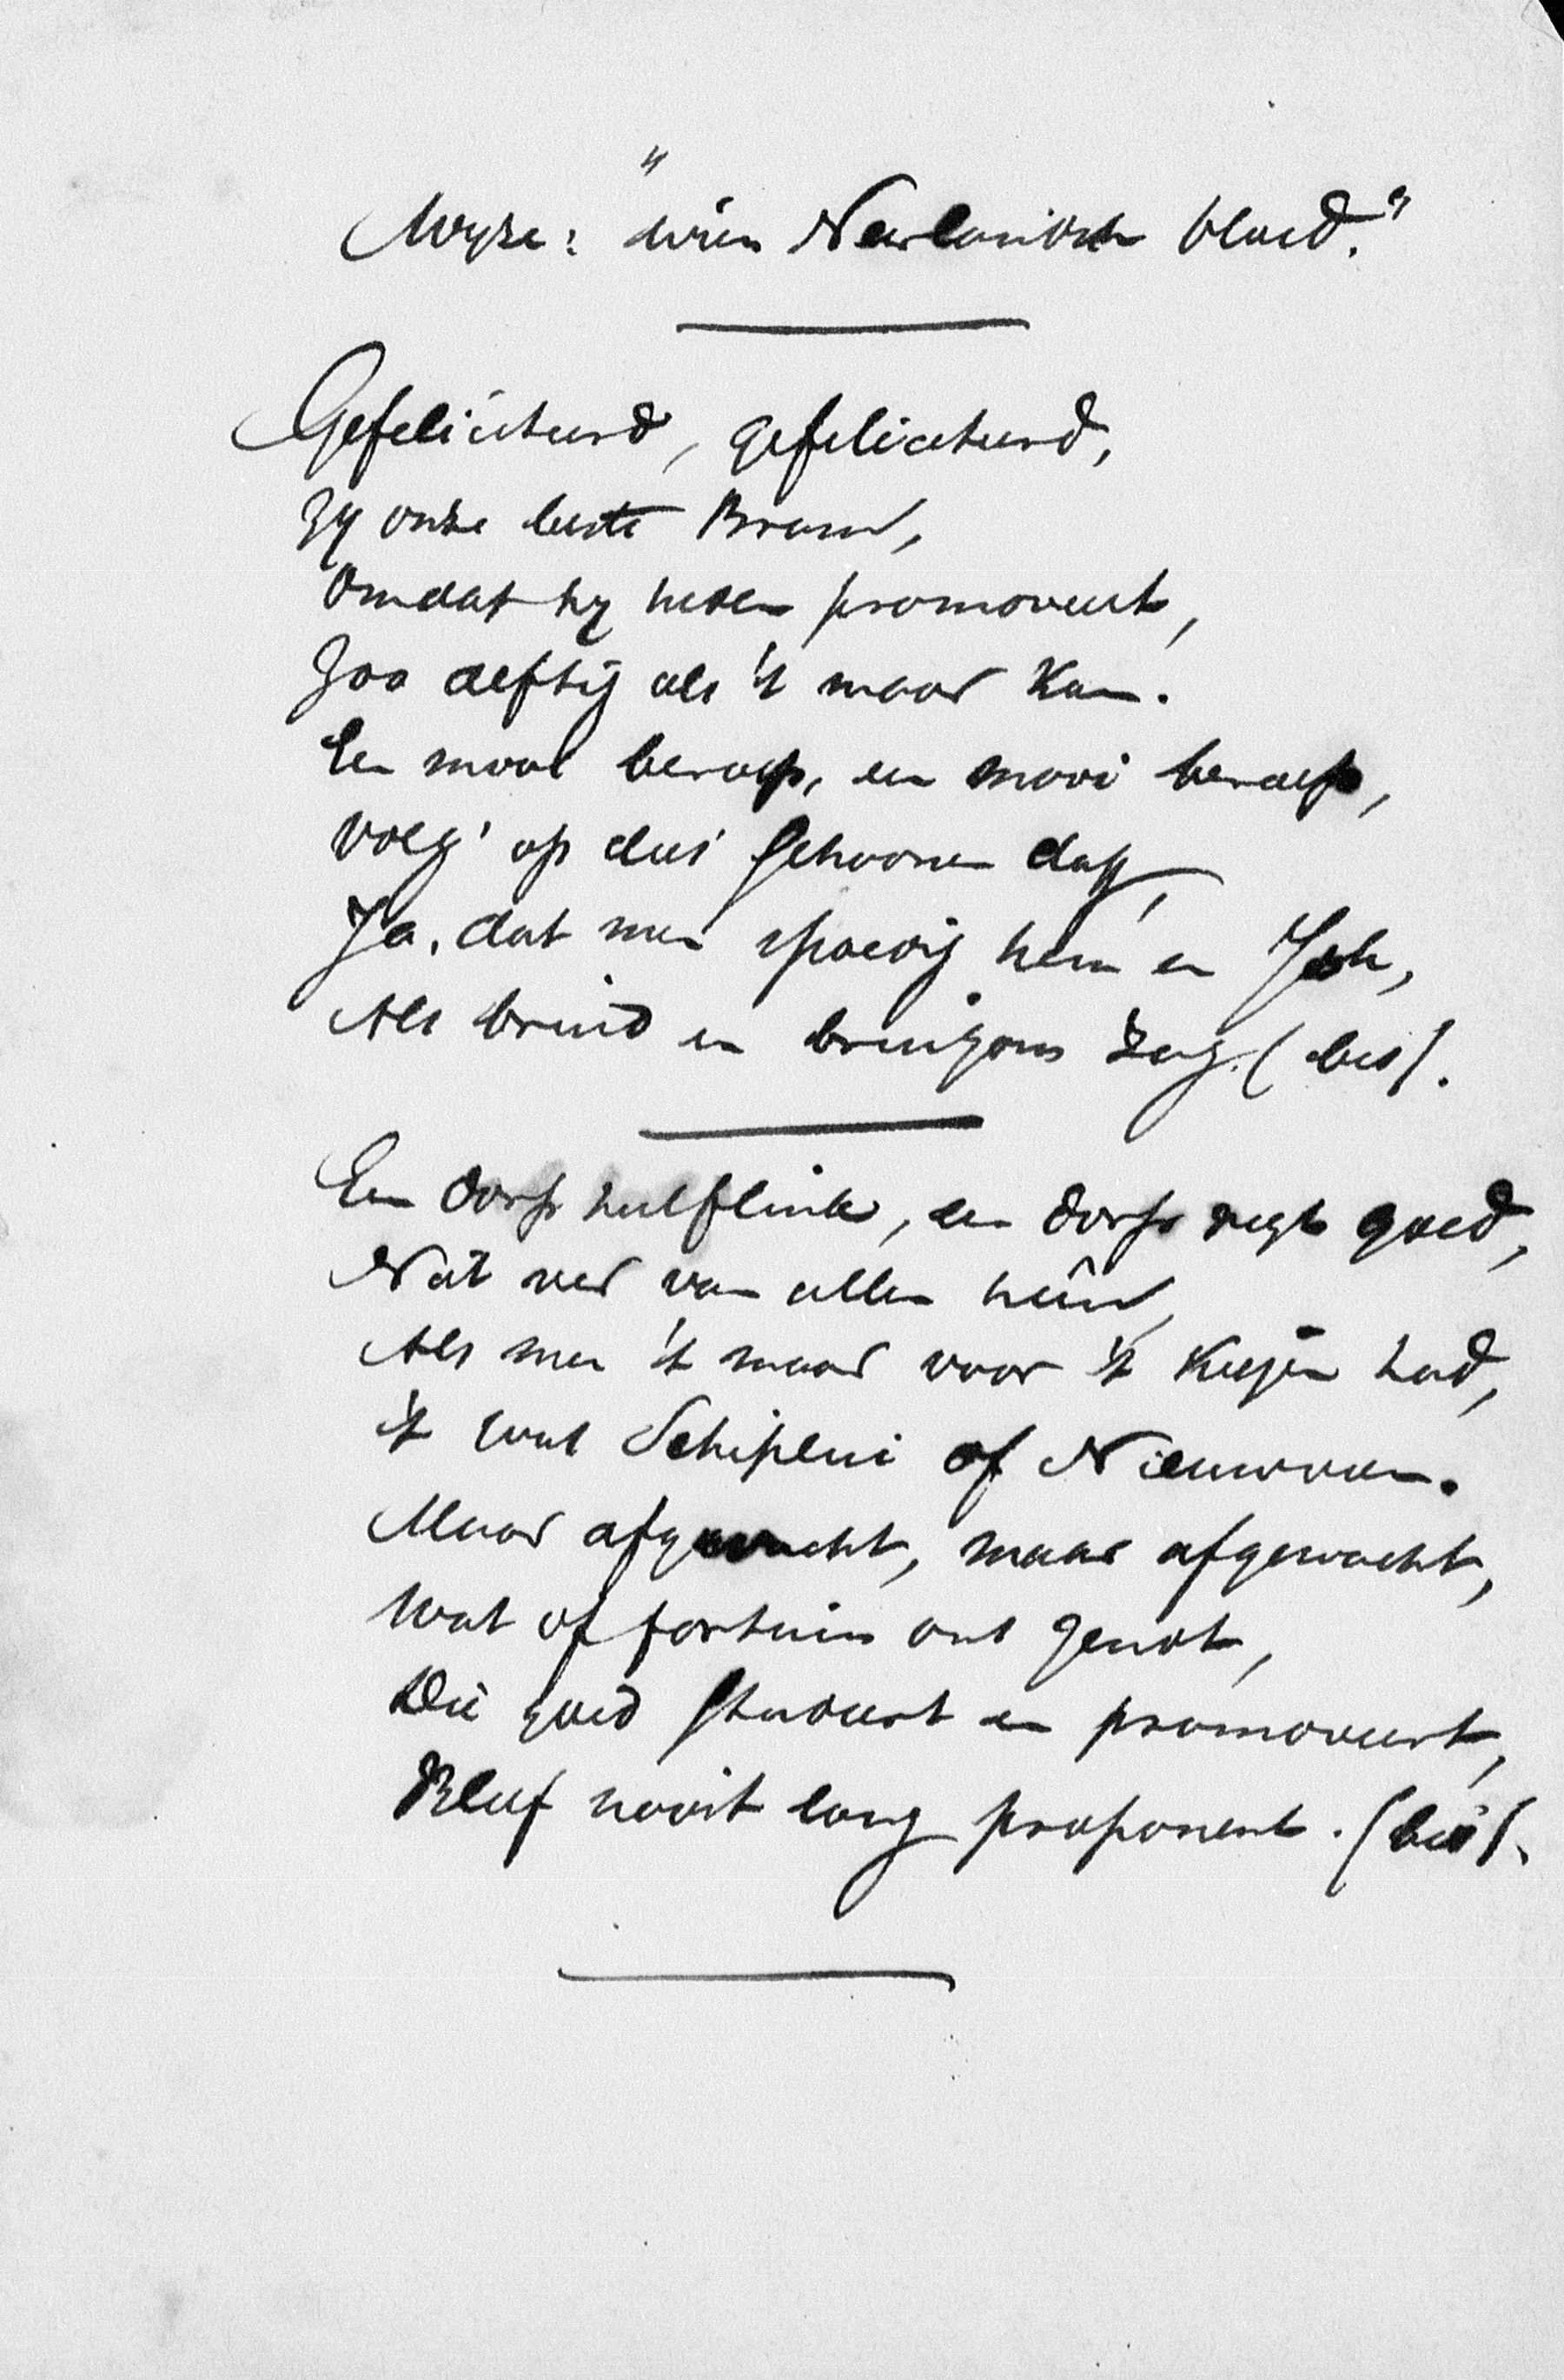 Wyze: "Wien Neerlandsch bloed."
Gefeliciteerd, gefeliciteerd,
Zy onze beste Bram,
Omdat hy heden promoveert,
Zoo deftig als 't maar kan.
Een mooi beroep, een mooi beroep,
Volg' op dees' schoonen dag,
Ja, dat men spoedig hem en Joh,
Als bruid en bruigom zag. (bis).
Een dorp heel flink, een dorp regt goed,
Niet ver van allen heen,
Als men 't maar voor 't kiezen had,
't was Schiplui of Nieuwveen.
Maar afgewacht, maar afgewacht,
Wat of fortuin ons zendt,
Die goed studeert en promoveert,
Bleef nooit lang proponent. (bis).